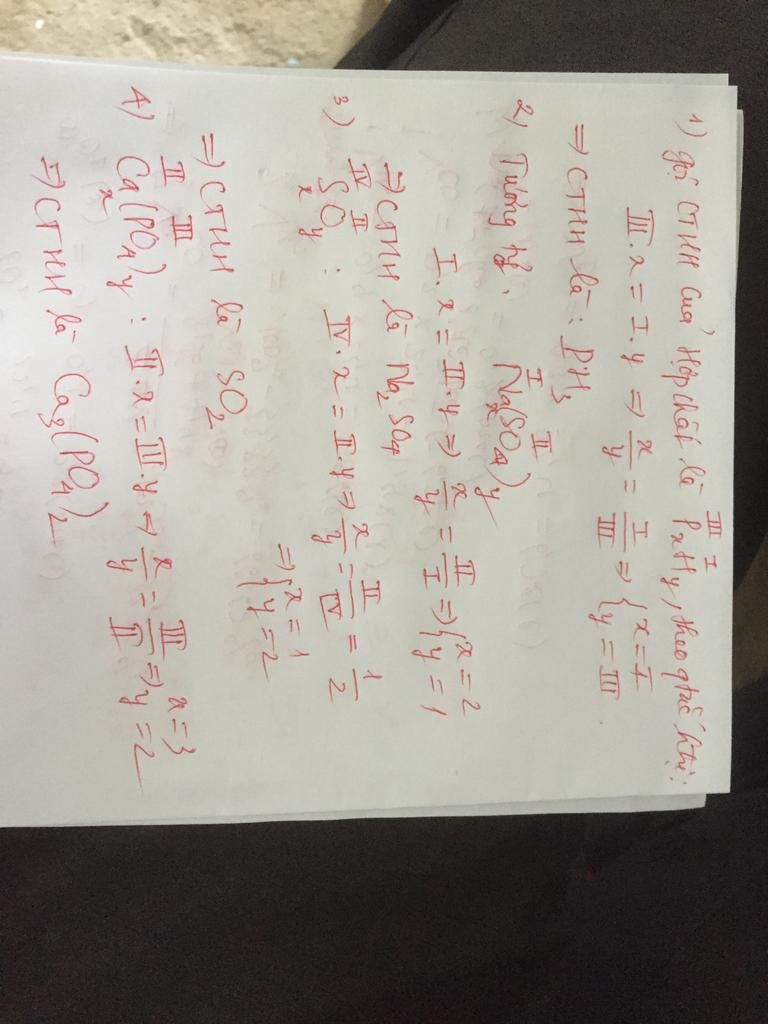 1) gọi CTHH của hợp chất là PₓHᵧ, theo qtắc htrị:
III I
III.x = I.y => x/y = I/III => { x = I
y = III.
=> CTHH là : PH₃
2) Tương tự. Naₓ(SO₄)ᵧ
I II
I.x = II.y => x/y = II/I => { x = 2
y = 1
=> CTHH là Na₂SO₄
3) SₓOᵧ : IV.x = II.y => x/y = II/IV = 1/2
IV II
=> { x = 1
y = 2
=> CTHH là SO₂
4) Caₓ(PO₄)ᵧ : II.x = III.y => x/y = III/II => x = 3
II III
y = 2
=> CTHH là Ca₃(PO₄)₂